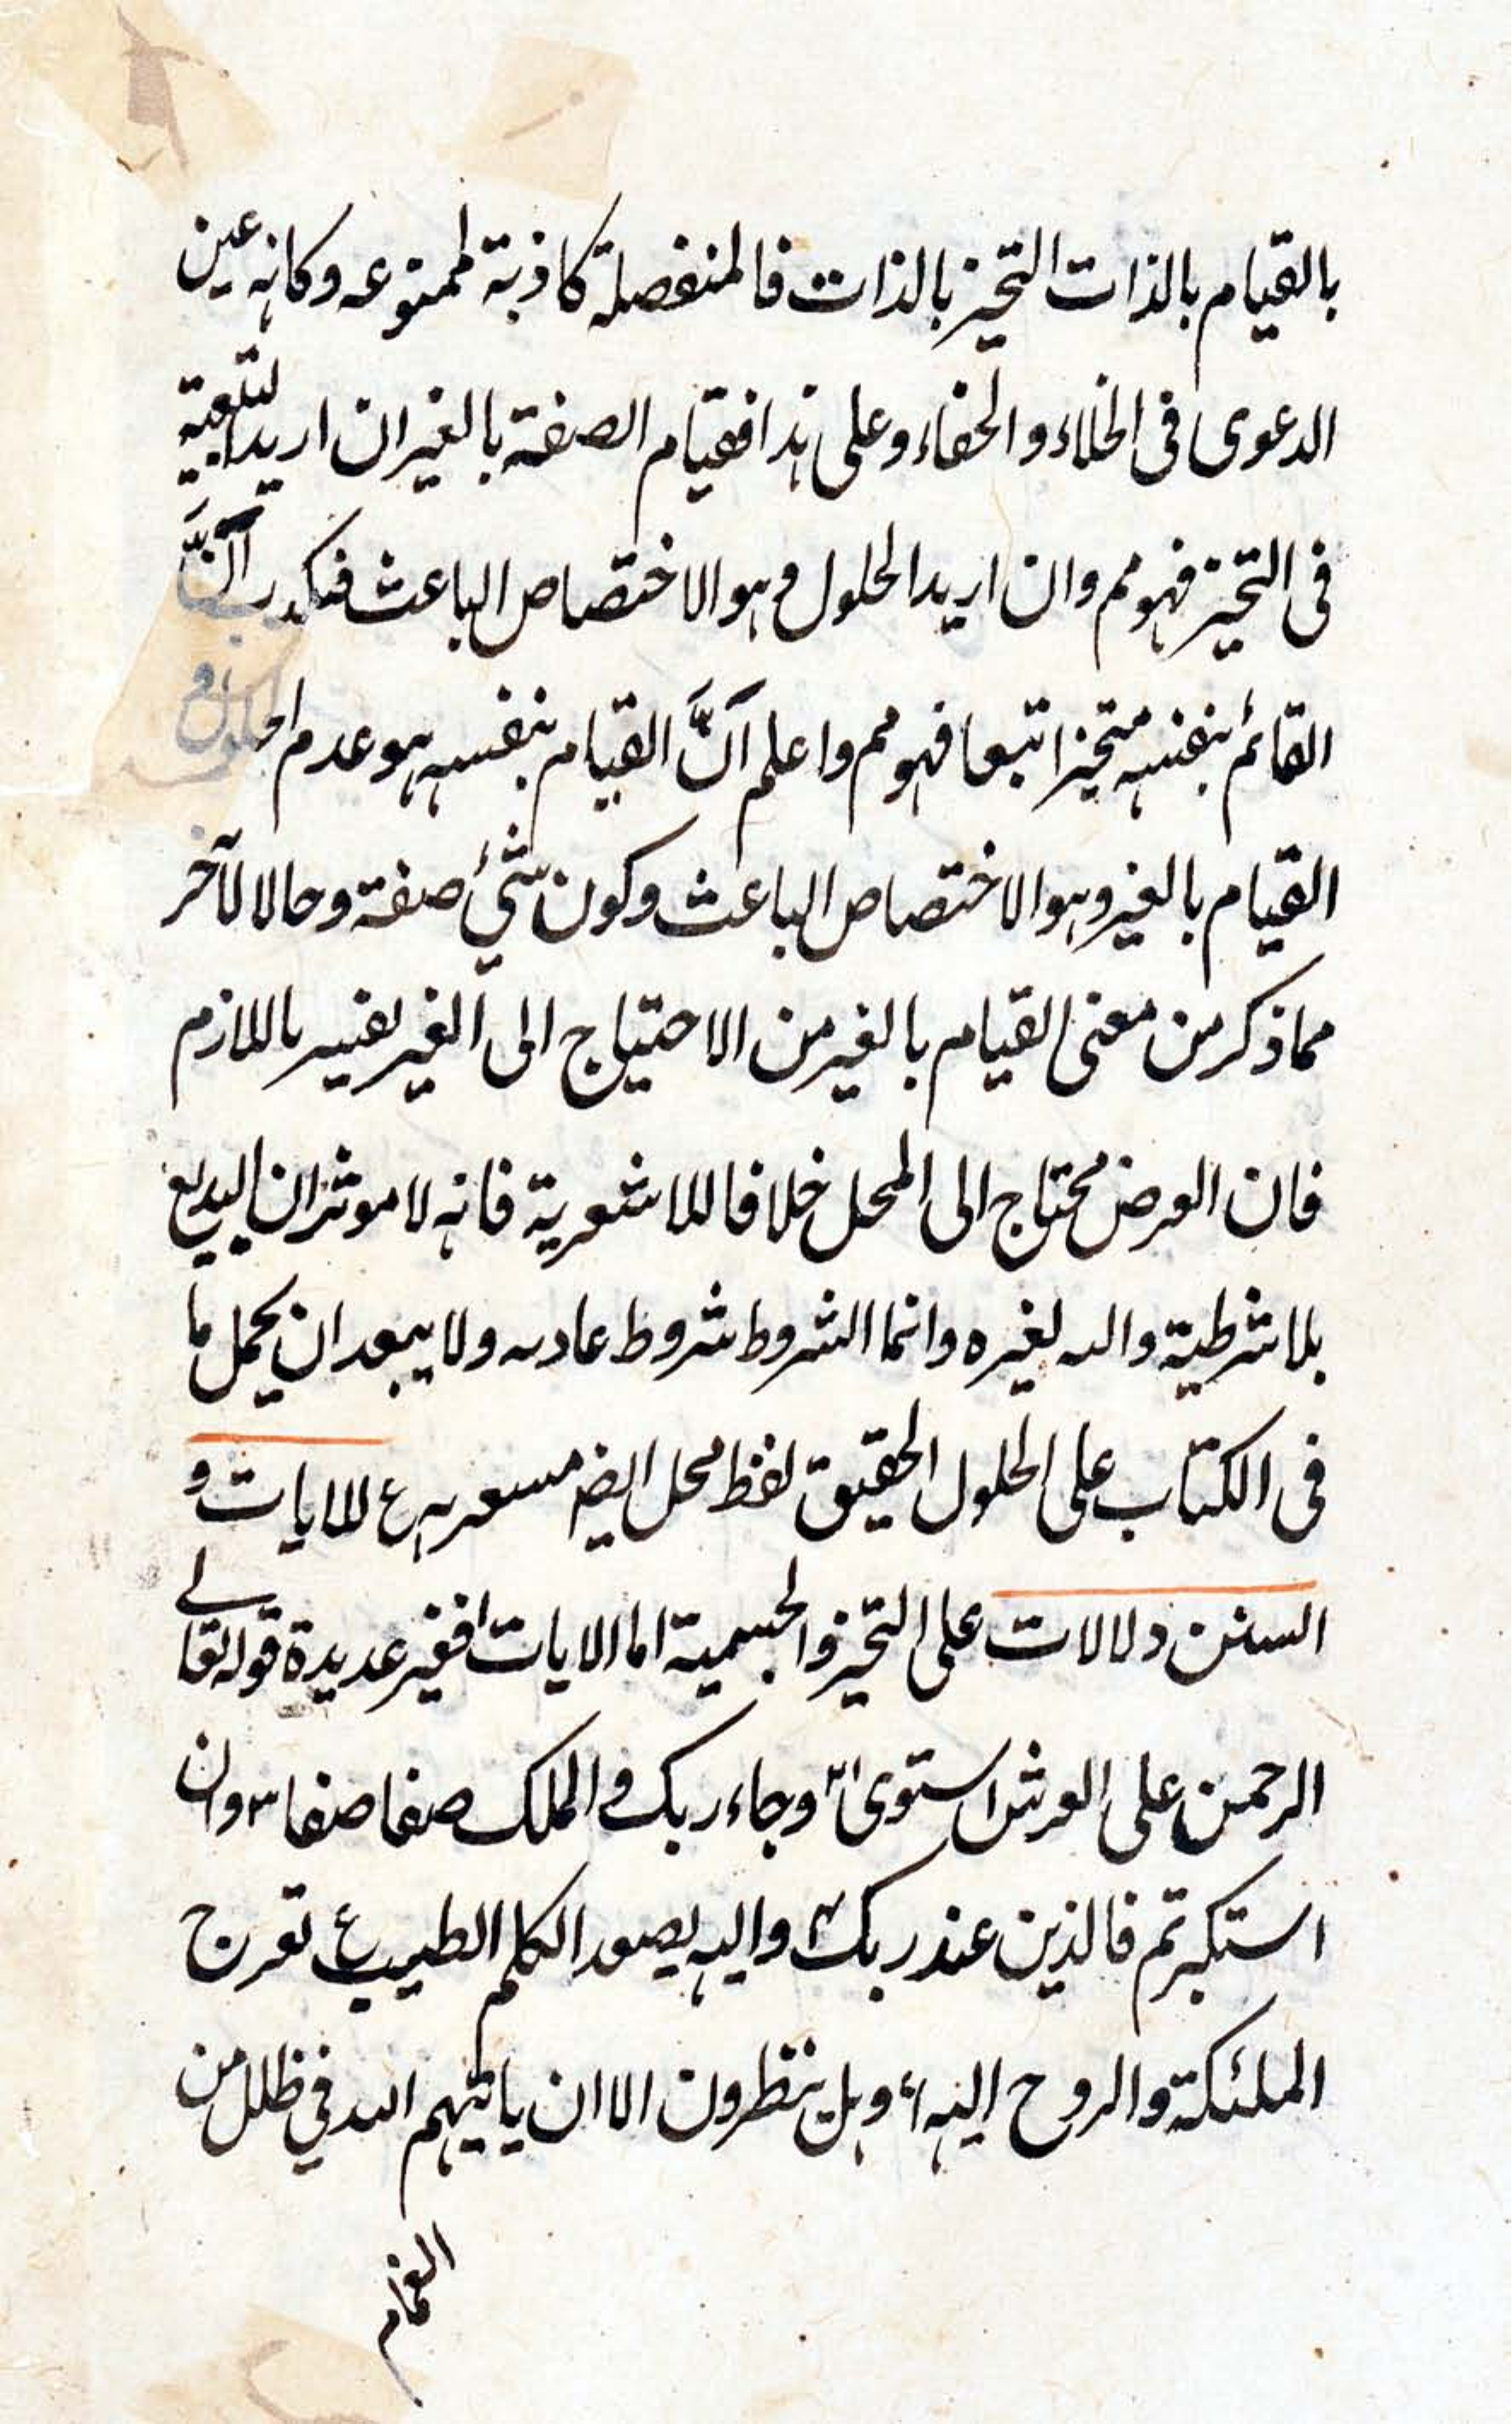 بالقيام بالذات التحيز بالذات فالمنفصلة كاذبة ممنوعه وكانه عين
الدعوى فى الخلاء والخفاء وعلى هذا فقيام الصفة بالغير ان اريد التبعية
فى التحيز فهو مم وان اريد الحلول وهو الاختصاص الباعث فكذب انّ
القائم بنفسه متحيز اتبعا فهو مم واعلم انَّ القيام بنفسه هو عدم الحلول و
القيام بالغير وهو الاختصاص الباعث وكون شئ صفة وحالا لآخر
مما ذكر من معنى القيام بالغير من الاحتياج الى الغير تفسير باللازم
فان العرض محتاج الى المحل خلافا للاشعرية فانه لا موثر ان البديع
بلا شرطية والد لغيره وانما الشروط شروط عاديه ولا يبعد ان يحمل ما
فى الكتاب على الحلول الحقيق لفظ محل ايضه للايات و
السنن دلالات على التحيز والجسمية اما الايات فغير عديدة قوله تعالے
الرحمن على العرش استوى ٢ وجاء ربك و الملك صفا صفا ٣ وان
استكبرتم فالذين عند ربك ٤ واليه يصعد الكلم الطيب ع تعرج
الملئكة والروح اليه ٦ وهل ينظرون الا ان ياتيهم الله في ظلل من
الغمام